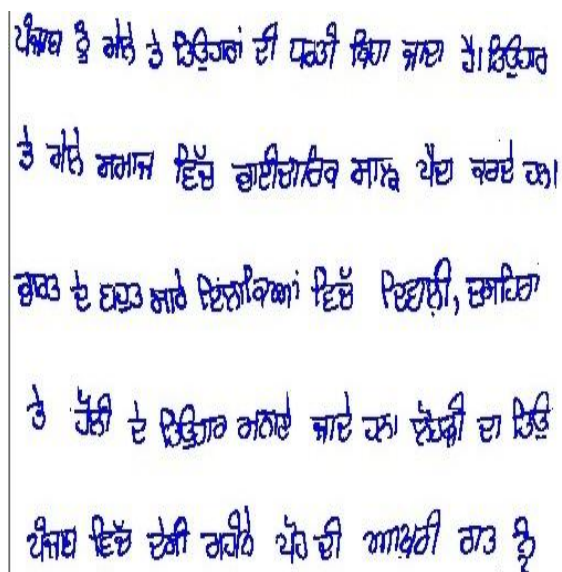 ਪੰਜਾਬ ਨੂੰ ਮੇਲੇ ਤੇ ਤਿਉਹਾਰਾਂ ਦੀ ਧਰਤੀ ਕਿਹਾ ਜਾਦਾ ਹੈ। ਤਿਉਹਾਰ
ਤੇ ਮੇਲੇ ਸਮਾਜ ਵਿੱਚ ਭਾਈਚਾਰਿਕ ਸਾਂਝ ਪੈਦਾ ਕਰਦੇ ਹਨ।
ਭਾਰਤ ਦੇ ਬਹੁਤ ਸਾਰੇ ਇਲਾਕਿਆਂ ਵਿੱਚ ਦਿਵਾਲੀ, ਦੁਸਹਿਰਾ
ਤੇ ਹੋਲੀ ਦੇ ਤਿਉਹਾਰ ਮਨਾਏ ਜਾਦੇ ਹਨ। ਲੋਹੜੀ ਦਾ ਤਿਉ
ਪੰਜਾਬ ਵਿੱਚ ਦੇਸੀ ਮਹੀਨੇ ਪੋਹ ਦੀ ਆਖ਼ਰੀ ਰਾਤ ਨੂੰ